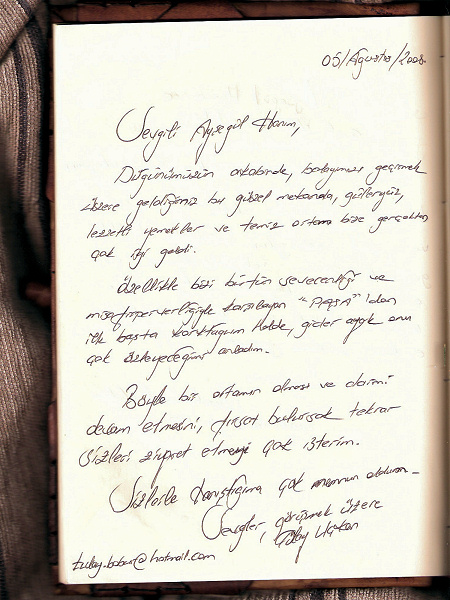 05/Ağustos/2008
Sevgili Ayşegül Hanım,
Düğünümüzün akabinde, balayımızı geçirmek
üzere geldiğimiz bu güzel mekanda, güleryüz,
lezzetli yemekler ve temiz ortam bize gerçekten
çok iyi geldi.
Özellikle bizi bütün sevecenliği ve
misafirperverliğiyle karşılayan "PAŞA" 'dan
ilk başta korktuğum halde, gider ayak onu
çok özleyeceğimi anladım.
Böyle bir ortamın olması ve daimi
devam etmesini, fırsat bulursak tekrar
sizleri ziyaret etmeyi çok isterim.
Sizlerle tanıştığıma çok memnun oldum.
Sevgiler, görüşmek üzere
Tülay
tulay.babur@hotmail.com